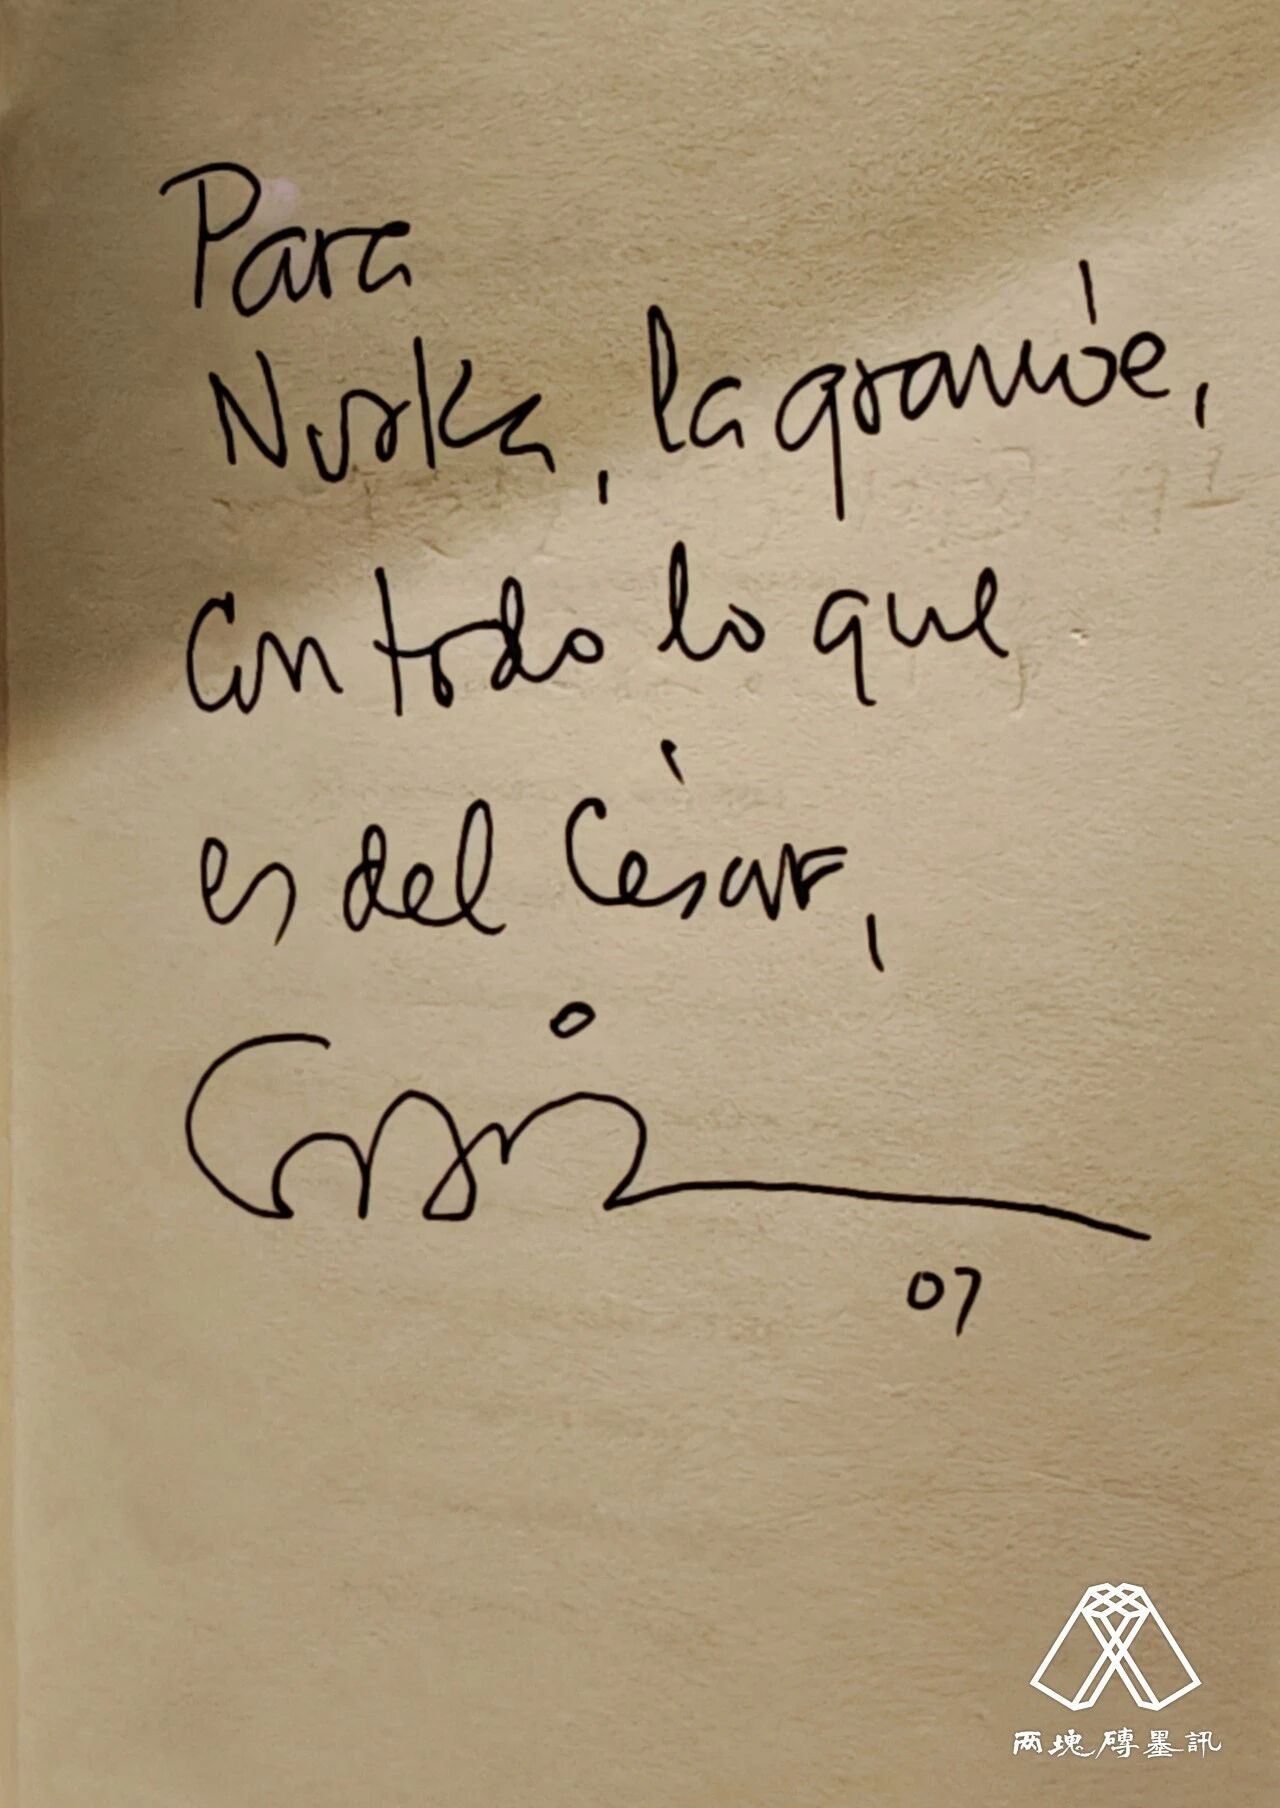 Para
Nurka, la grande,
con todo lo que
es del César,
07
两塊磚墨訊